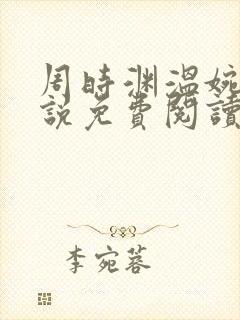 周時渊溫婉
說免費閱讀
李宛蓉